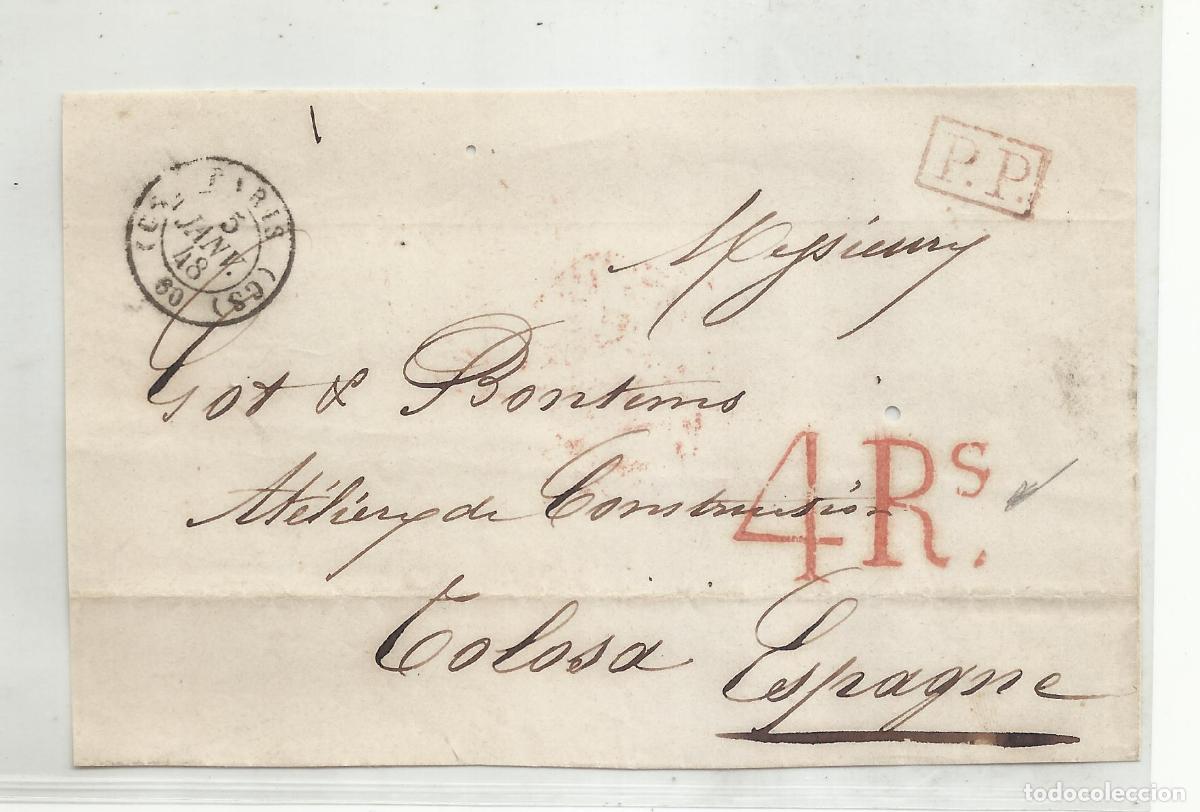 PARIS
5
JANV.
48
60
P.P.
Messieurs
Got & Bontems
Atéliers de Construction
4Rs.
Tolosa Espagne
todocoleccion